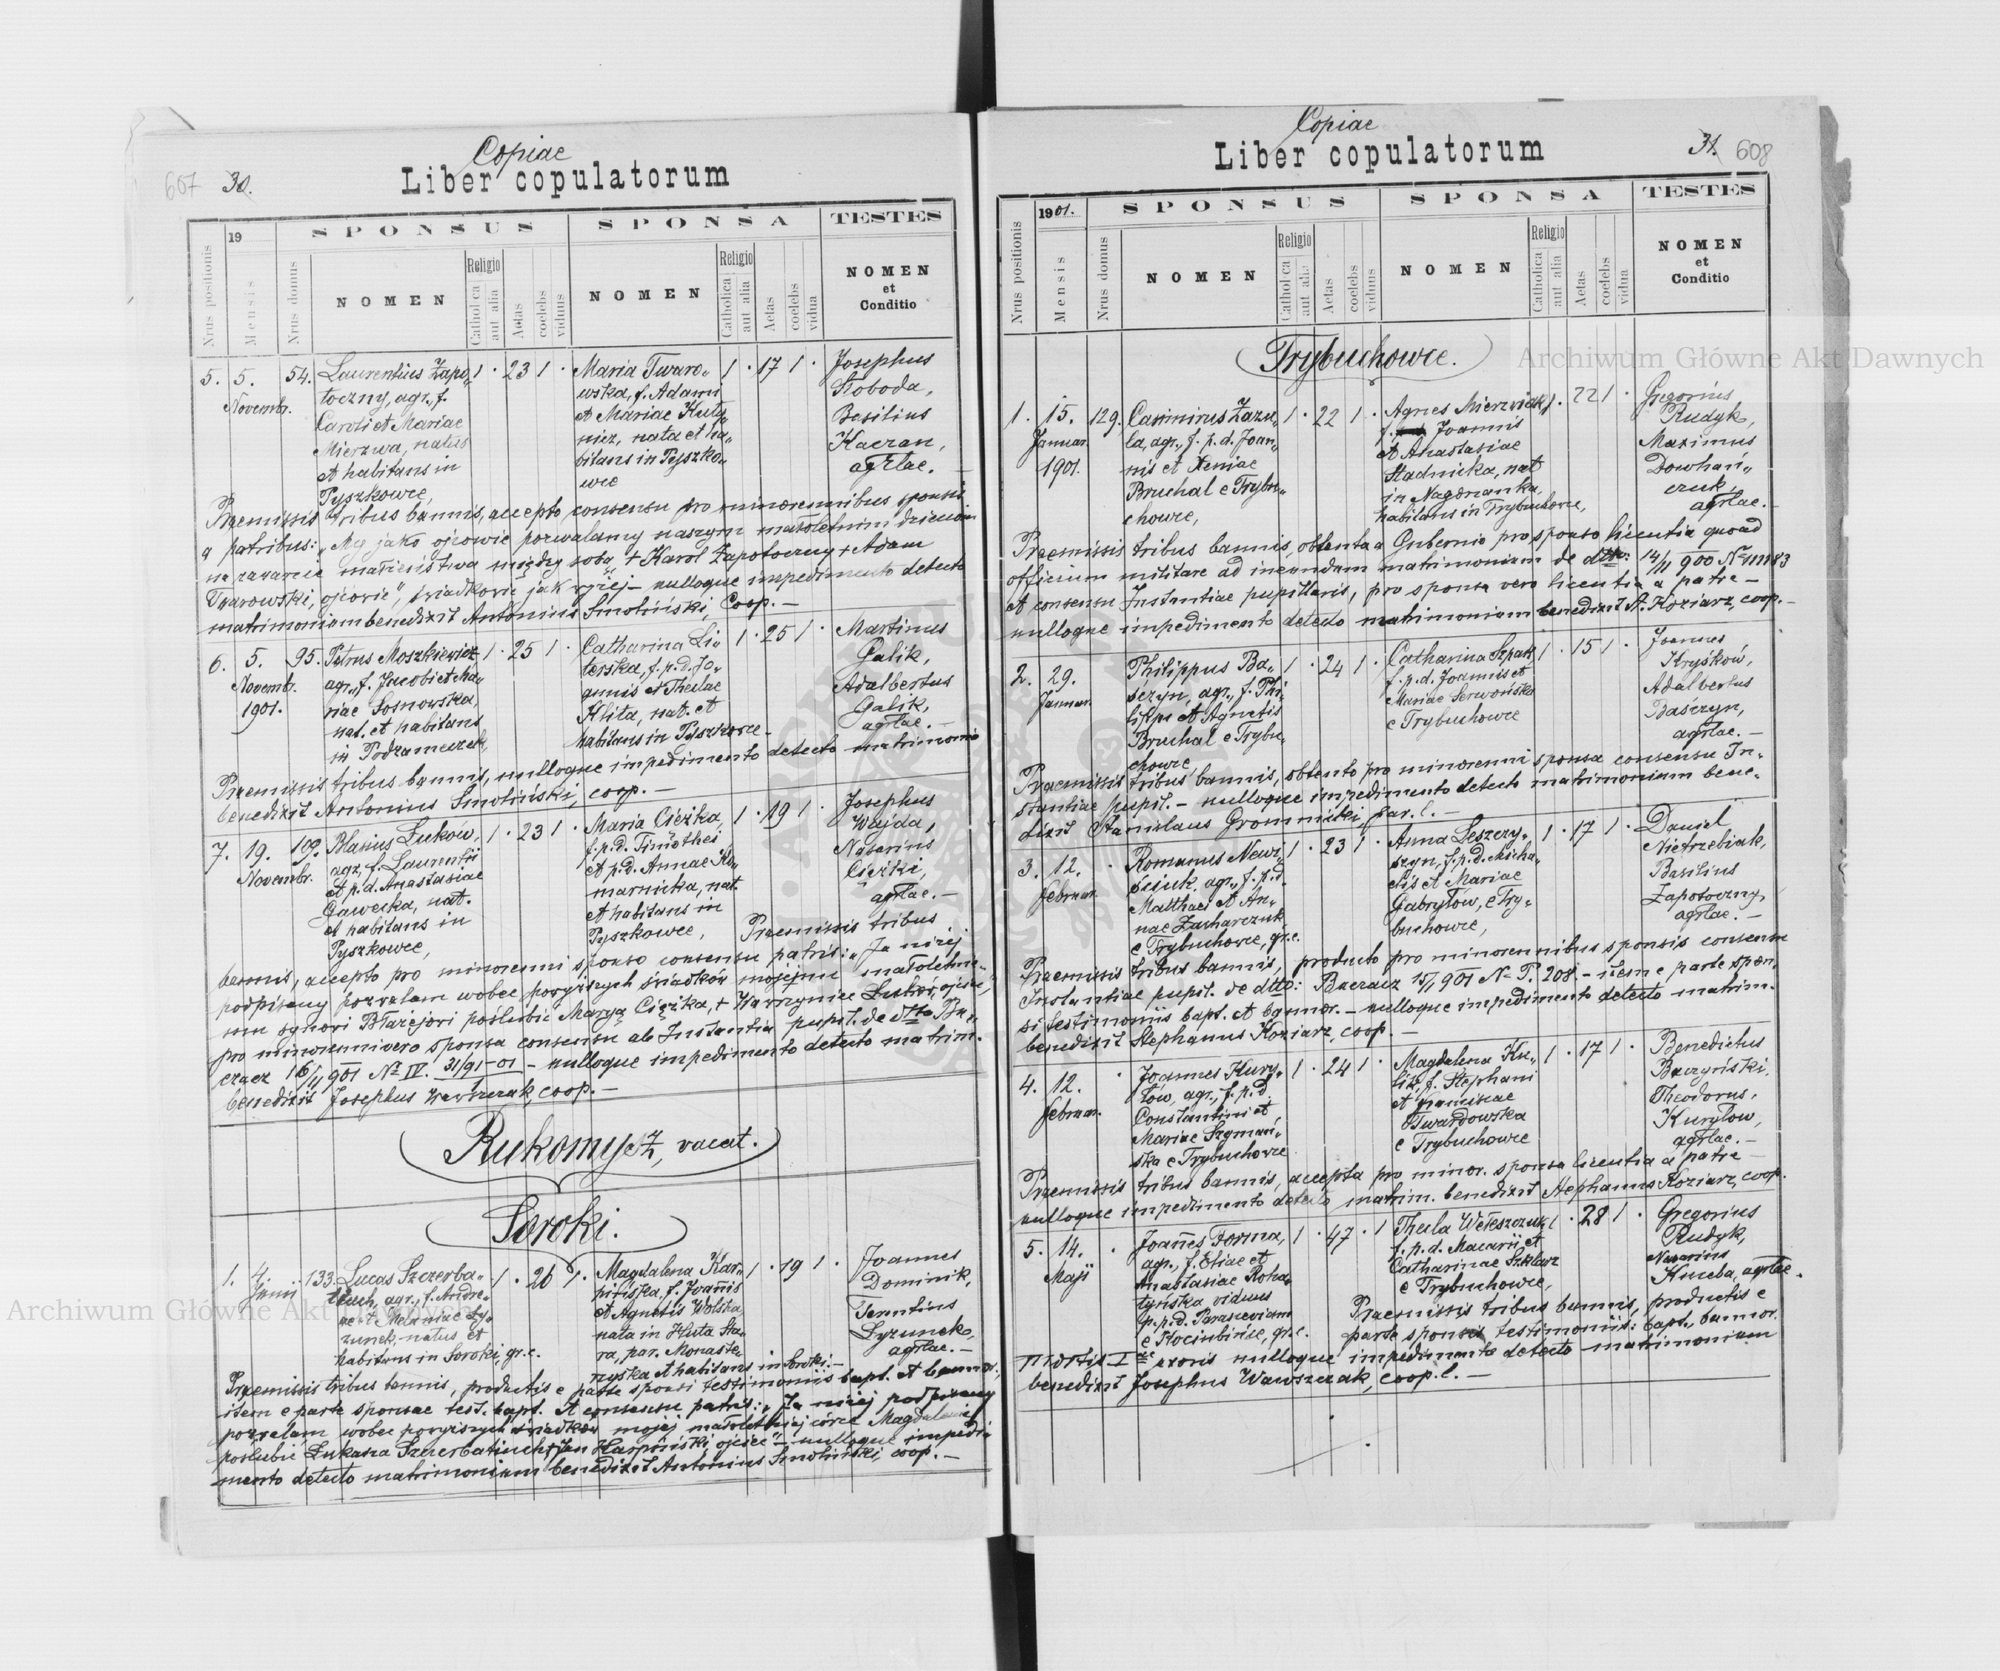 Copiae
Liber copulatorum
607 30.
Nrus positionis
19
Mensis
Nrus domus
SPONSUS
NOMEN
Religio
Catholica
aut alia
Aetas
coelebs
viduus
SPONSA
NOMEN
Religio
Catholica
aut alia
Aetas
coelebs
vidua
TESTES
NOMEN
et
Conditio
5. 5. Novembr. 54.
Laurentius Zapo„
toczny, agr., f.
Caroli et Mariae
Mierzwa, natus
et habitans in
Pyszkowce,
1 · 23 1 ·
Maria Twaro„
wska, f. Adami
et Mariae Kuty
niez, nata et ha„
bitans in Pyszko„
wce
1 · 17 1 ·
Josephus
Słoboda,
Basilius
Kaczan,
agrlae.
Praemissis tribus bannis, accepto consensu pro minorennibus sponsis
a patribus: „My jako ojcowie pozwalamy naszym małoletnim dzieciom
na zawarcie małżeństwa między sobą + Karol Zapotoczny + Adam
Twarowski, ojcowie", świadkowie jak wyżej – nulloque impedimento detecto
matrimonium benedixit Antonius Smoliński, Coop. –
6. 5. Novembr. 1901. 95.
Petrus Moszkiewicz
agr., f. Jacobi et Ma„
riae Sosnowska,
nat. et habitans
in Podzameczek,
1 · 25 1 ·
Catharina Li„
terska, f. p. d. Jo„
annis et Theclae
Hlita, nat. et
habitans in Pyszkowce –
1 · 25 1 ·
Martinus
Galik,
Adalbertus
Galik,
agrlae. –
Praemissis tribus bannis, nulloque impedimento detecto matrimonio
benedixit Antonius Smoliński, coop. –
7. 19. Novembr. 109.
Blasius Łuków,
agr., f. Laurentii
et p. d. Anastasiae
Gawecka, nat.
et habitans in
Pyszkowce,
1 · 23 1 ·
Maria Ciężka,
f. p. d. Timothei
et p. d. Annae Ko„
marnicka, nat.
et habitans in
Pyszkowce,
1 · 19 1 ·
Josephus
Wajda,
Nazarius
Ciężki,
agrlae. –
Praemissis tribus
bannis, accepto pro minorenni sponso consensu patris: „Ja niżej
podpisany pozwalam wobec powyższych świadków mojemu małoletnie„
mu synowi Błażejowi poślubić Maryą Ciężka, + Wawrzyniec Łuków, ojciec",
pro minorenni vero sponsa consensu ab Instantia pupil. de dtto Bu„
czacz 16/11 901 № IV. 31/91-01 – nulloque impedimento detecto matrim.
benedixit Josephus Wawszczak, coop. –
Rukomysz, vacat.
Soroki.
1. 4 Junii 133.
Lucas Szczerba„
tiuch, agr., f. Andre„
ae + Melaniae Ły„
zunek, natus et
habitans in Soroki, gr. c.
1 · 26 1 ·
Magdalena Kar„
pińska, f. Joannis
et Agnetis Wolska,
nata in Huta Sta„
ra, par. Monaste„
rzyska et habitans in Soroki. –
1 · 19 1 ·
Joannes
Dominik,
Terentius
Łyzunek,
agrlae. –
Praemissis tribus bannis, productis e parte sponsi testimoniis bapt. et bannor.,
item e parte sponsae test. bapt. et consensu patris: „Ja niżej podpisany
pozwalam wobec powyższych świadków mojej małoletniej córce Magdalenie
poślubić Łukasza Szczerbatiucha + Jan Karpiński, ojciec" – nulloque impedi„
mento detecto matrimonium benedixit Antonius Smoliński, coop. –
Copiae
Liber copulatorum
31. 608
Nrus positionis
1901.
Mensis
Nrus domus
SPONSUS
NOMEN
Religio
Catholica
aut alia
Aetas
coelebs
viduus
SPONSA
NOMEN
Religio
Catholica
aut alia
Aetas
coelebs
vidua
TESTES
NOMEN
et
Conditio
Trybuchowce.
1. 15. Januar. 1901. 129.
Casimirus Zazu„
la, agr., f. p. d. Joan„
nis et Xeniae
Bruchal e Trybu„
chowce,
1 · 22 1 ·
Agnes Mierzwiak,
f. Joannis
et Anastasiae
Stadnicka, nat
in Nagórzanka,
habitans in Trybuchowce,
1 · 22 1 ·
Gregorius
Rudyk,
Maximus
Dowhań„
czuk,
agrlae. –
Praemissis tribus bannis, obtenta a Gubernio pro sponso licentia quoad
officium militare ad ineundum matrimonium de dtto: 14/11 900 № 111183
et consensu Instantiae pupillaris, pro sponsa vero licentia a patre –
nulloque impedimento detecto matrimonium benedixit St. Koziarz, coop. –
2. 29. Januar.
Philippus Ba„
szczyn, agr., f. Phi„
lippi et Agnetis
Bruchal e Trybu„
chowce,
1 · 24 1 ·
Catharina Szpak,
f. p. d. Joannis et
Mariae Serwońska
e Trybuchowce
1 · 15 1 ·
Joannes
Kryśków,
Adalbertus
Baszczyn,
agrlae. –
Praemissis tribus bannis, obtento pro minorenni sponsa consensu In„
stantiae pupil. – nulloque impedimento detecto matrimonium bene„
dixit Stanislaus Gromnicki, par. l. –
3. 12. Februar.
Romanus Newi„
siuk, agr., f. p. d.
Matthaei et An„
nae Zacharczuk
e Trybuchowce, gr. c.
1 · 23 1 ·
Anna Leszczy„
szyn, f. p. d. Micha„
elis et Mariae
Gabryłow, e Try„
buchowce,
1 · 17 1 ·
Daniel
Nietrzebiak,
Basilius
Zapotoczny,
agrlae. –
Praemissis tribus bannis, producto pro minorennibus sponsis consensu
Instantiae pupil. de dtto: Buczacz 15/1 901 № P. 208. – item e parte spon„
si testimoniis bapt. et bannor. – nulloque impedimento detecto matrim.
benedixit Stephanus Koziarz, coop. –
4. 12. Februar.
Joannes Kury„
łow, agr., f. p. d.
Constantini et
Mariae Szymań„
ska e Trybuchowce
1 · 24 1 ·
Magdalena Ku„
lik, f. Stephani
et Franciscae
Twardowska
e Trybuchowce
1 · 17 1 ·
Benedictus
Baczyński,
Theodorus,
Kuryłow,
agrlae. –
Praemissis tribus bannis, accepta pro minor. sponsa licentia a patre –
nulloque impedimento detecto matrim. benedixit Stephanus Koziarz, coop.
5. 14. Maji
Joannes Forma,
agr., f. Eliae et
Anastasiae Roha„
tyńska viduus
p. p. d. Parasceviam
e Kociubińce, gr. c.
1 · 47 · 1
Thecla Wełeszczuk,
f. p. d. Macarii et
Catharinae Szklarz
e Trybuchowce,
1 · 28 1 ·
Gregorius
Rudyk,
Nazarius
Kneba, agrlae.
Praemissis tribus bannis, productis e
parte sponsi testimoniis: bapt., bannor.
mortis Iae uxoris nulloque impedimento detecto matrimonium
benedixit Josephus Wawszczak, coop. l. –
Archiwum Główne Akt Dawnych
Archiwum Główne Akt Dawnych